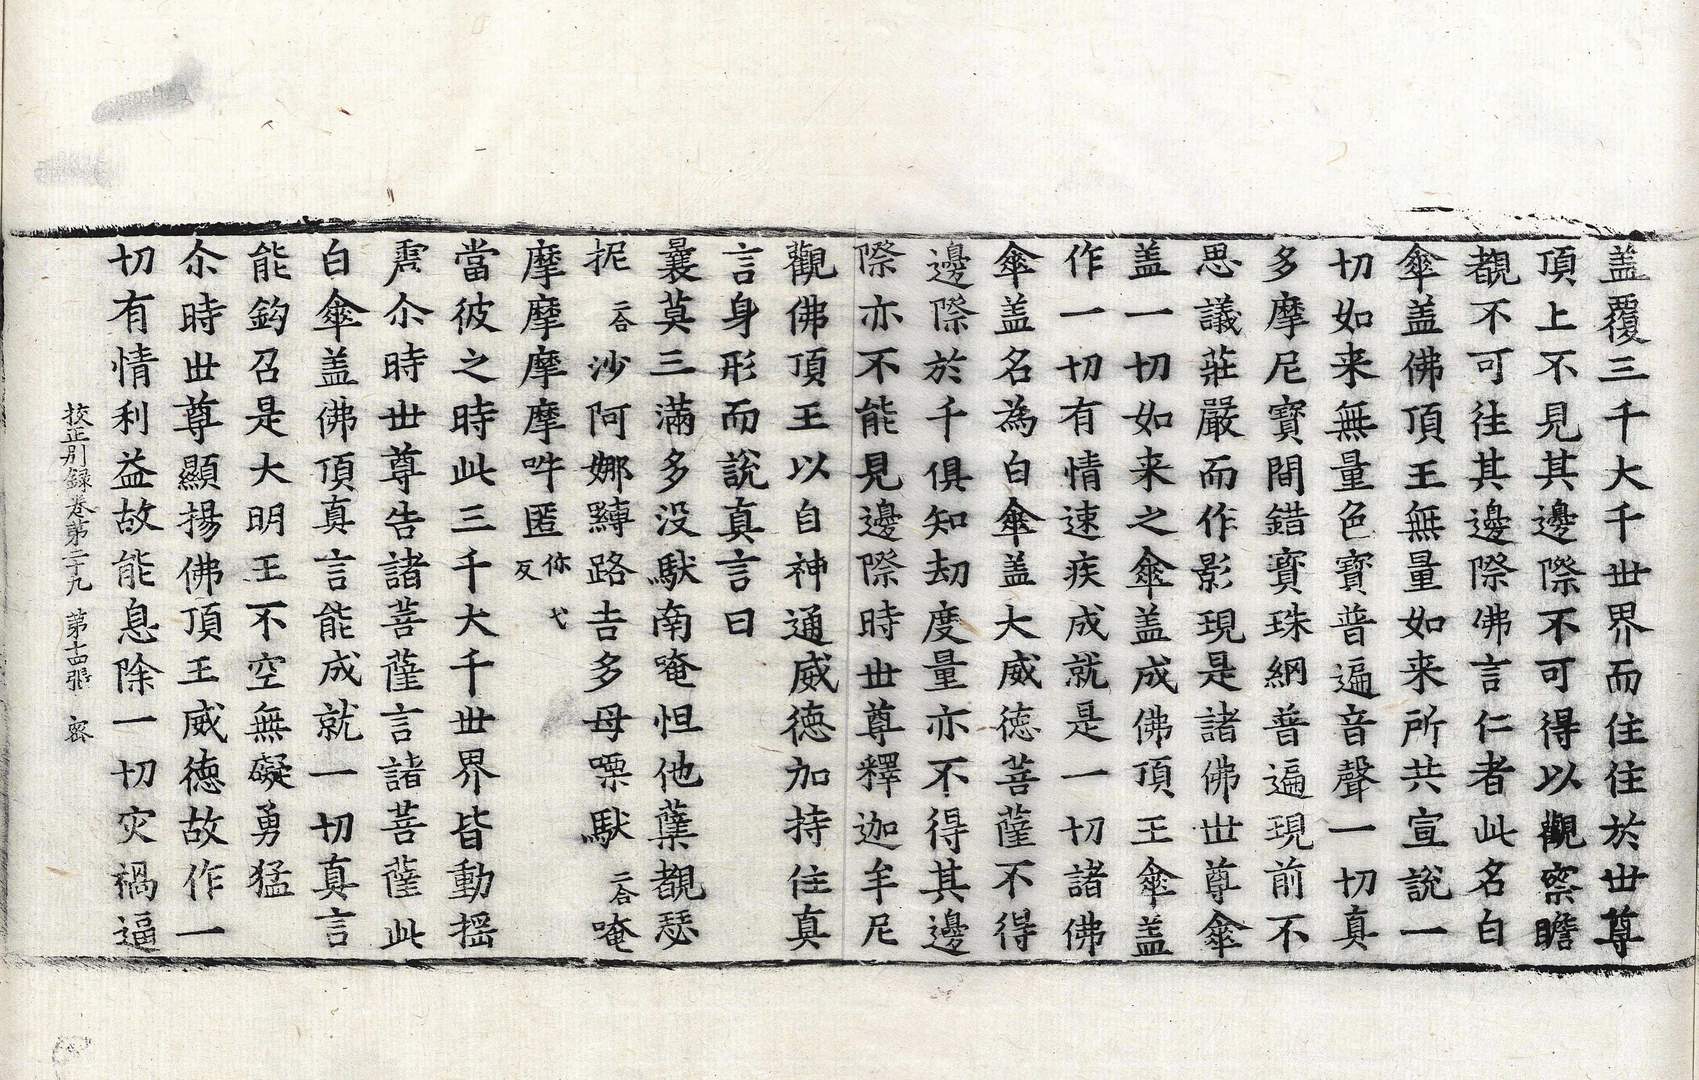 盖覆三千大千世界而住住於世尊
頂上不見其邊際不可得以觀察瞻
覩不可往其邊際佛言仁者此名白
傘盖佛頂王無量如来所共宣說一
切如来無量色寶普遍音聲一切真
多摩尼寶間錯寶珠網普遍現前不
思議莊嚴而作影現是諸佛世尊傘
盖一切如来之傘盖成佛頂王傘盖
作一切有情速疾成就是一切諸佛
傘盖名為白傘盖大威德菩薩不得
邊際於千俱知劫度量亦不得其邊
際亦不能見邊際時世尊釋迦牟尼
觀佛頂王以自神通威德加持住真
言身形而說真言曰
曩莫三滿多没馱南唵怛他蘖覩瑟
抳二合沙阿娜嚩路吉多母㗚馱二合唵
摩摩摩摩吽匿你弋反
當彼之時此三千大千世界皆動搖
震尒時世尊告諸菩薩言諸菩薩此
白傘盖佛頂真言能成就一切真言
能鈎召是大明王不空無礙勇猛
尒時世尊顯揚佛頂王威德故作一
切有情利益故能息除一切灾禍逼
挍正别録卷第二十九 第十四張 密